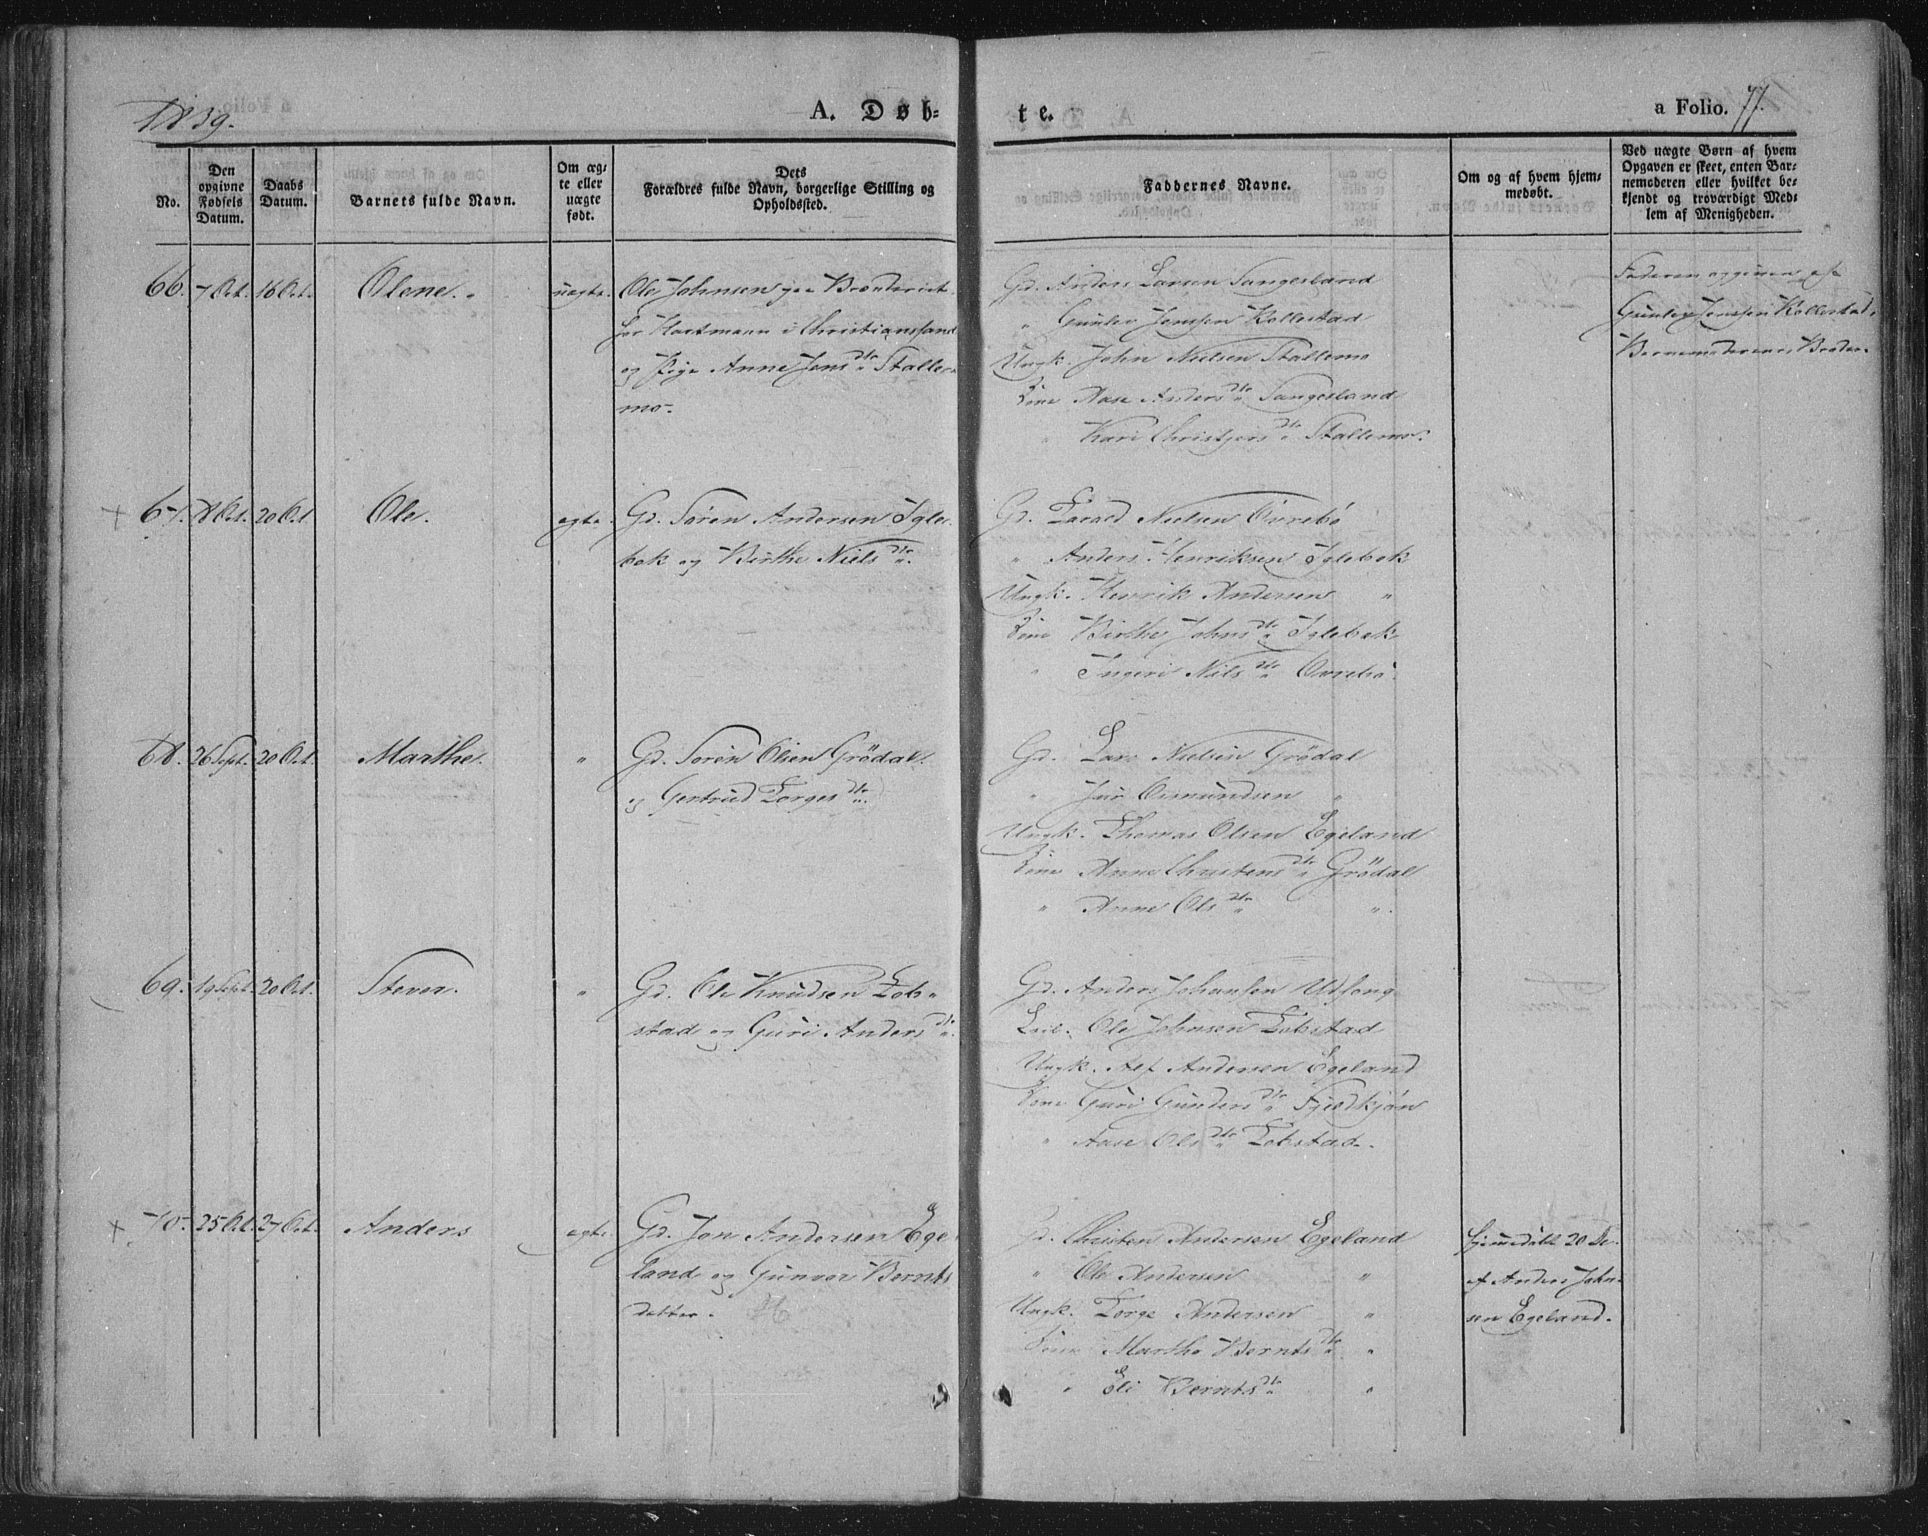 1839.
A. Døb-
te.
a Folio. 77.
No.
Den opgivne Fødsels Datum.
Daabs Datum.
Barnets fulde Navn.
Om ægte eller uægte født.
Dets Forældres fulde Navn, borgerlige Stilling og Opholdssted.
Faddernes Navne.
Om og af hvem hjemmedøbt.
Ved uægte Børn af hvem Opgaven er skeet, enten Barnemoderen eller hvilket bekjendt og troværdigt Medlem af Menigheden.
66. 7 Oct. 16 Oct. Olene. uægte.
Ole Johnsen
for Hartmann i Christianssand
og Pige Anne Jensdtr Stalle-
mo.
Gd. Anders Larsen Sangesland
" Gunlev Jenssen Kollestad
Ungk. John Nielsen Stallemo
Kone Aase Andersdtr Sangesland
" Kari Christensdtr Stallemo.
Faderen opgiven af
Gunlev Jenssen Kollestad,
Barnemoderens Broder.
67. 8 Oct. 20 Oct. Ole. ægte.
Gd. Sören Andersen Igle-
bæk og Birthe Nielsdtr.
Gd. Tarald Nielsen Övrebö
" Anders Henriksen Iglebæk
Ungk. Henrik Andersen "
Kone Birthe Johnsdtr Iglebæk
" Ingeri Nilsdtr Övrebö.
68. 26 Sept. 20 Oct. Marthe. "
Gd. Sören Olsen Grödal
og Gertrud Torgesdtr.
Gd. Lars Nielsen Grödal
" Osmundsen "
Ungk. Thomas Olsen Egeland
Kone Anne Christensdtr Grödal
" Anne Olsdtr ".
69. 19 Sept. 20 Oct. Stever. "
Gd. Ole Knudsen Tob-
stad og Guri Andersdtr.
Gd. Anders Johansen
Ole Johnsen Tobstad
Ungk. Alf Andersen Egeland
Kone Guri Gundersdtr Fjeldkjön
" Aase Olsdtr Tobstad.
70. 25 Oct. 27 Oct. Anders ægte
Gd. Jon Andersen Ege-
land og Gunvor Bernts
datter.
Gd. Christen Andersen Egeland
" Ole Andersen "
Ungk. Torge Andersen "
Kone Marthe Berntsdtr "
" Eli Berntsdtr "
Hjemmedöbt
af Anders John-
sen Egeland.